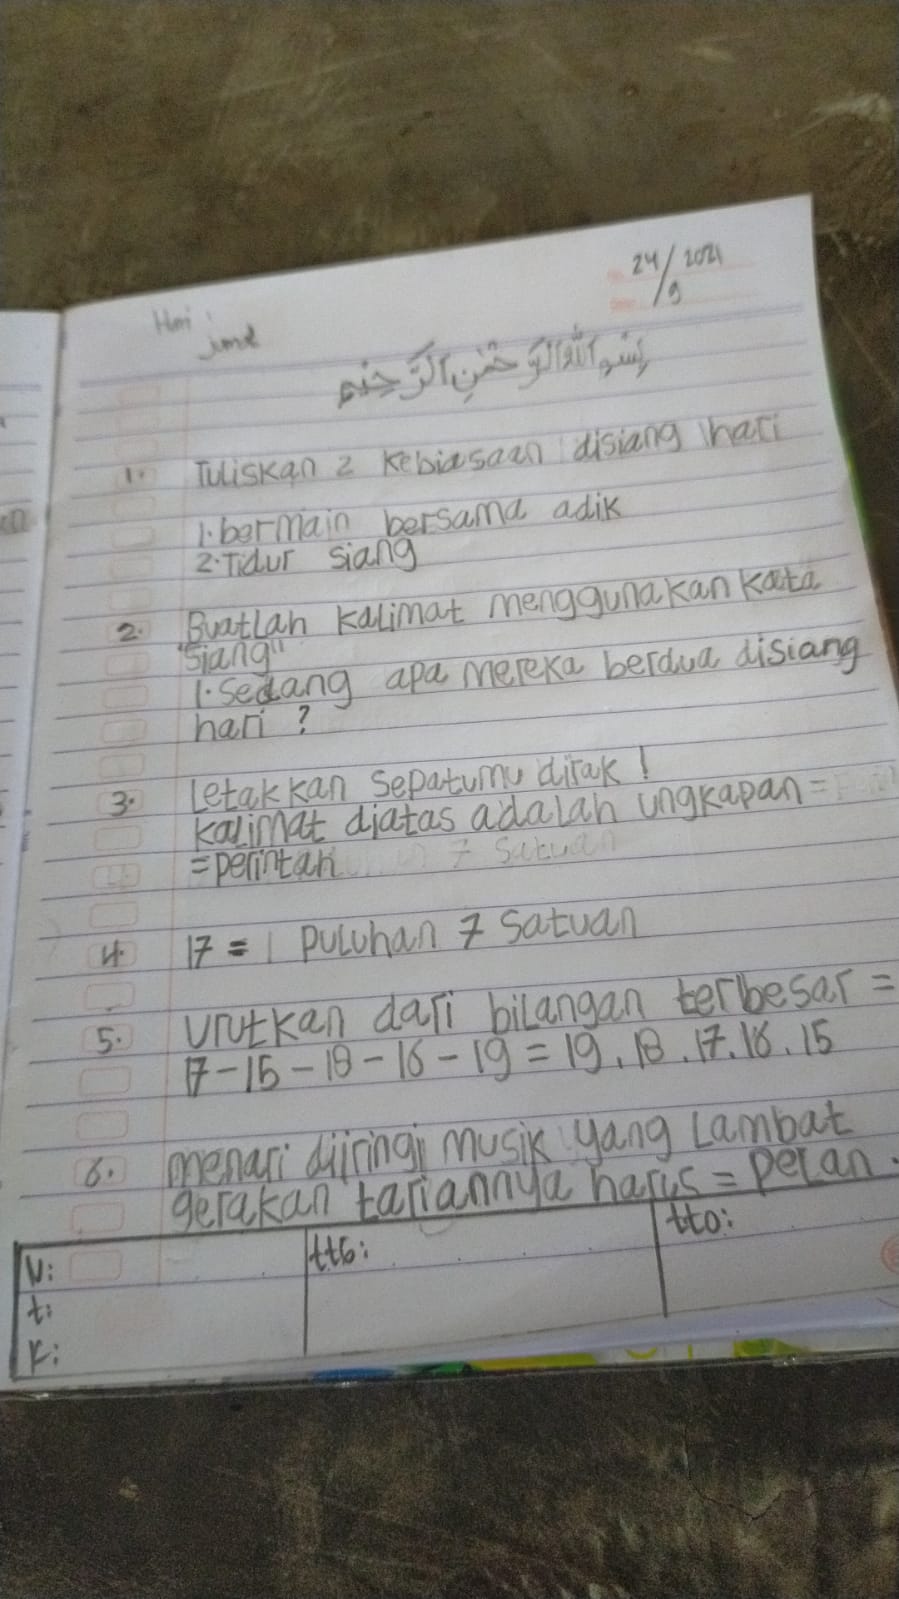 Hari :
24/9 2021
jumat
بِسْمِ اللهِ الرَّحْمٰنِ الرَّحِيْمِ
1. Tuliskan 2 kebiasaan disiang hari
1. bermain bersama adik
2. Tidur siang
2. Buatlah kalimat menggunakan kata
"siang"
1. Sedang apa mereka berdua disiang
hari ?
3. Letakkan sepatumu dirak !
kalimat diatas adalah ungkapan =
= perintah
7 satuan
4. 17 = 1 puluhan 7 satuan
5. Urutkan dari bilangan terbesar =
17 - 15 - 18 - 16 - 19 = 19, 18, 17, 16, 15
6. menari diiringi musik yang Lambat
gerakan tariannya harus = pelan.
N: ttG: tto:
t:
K: